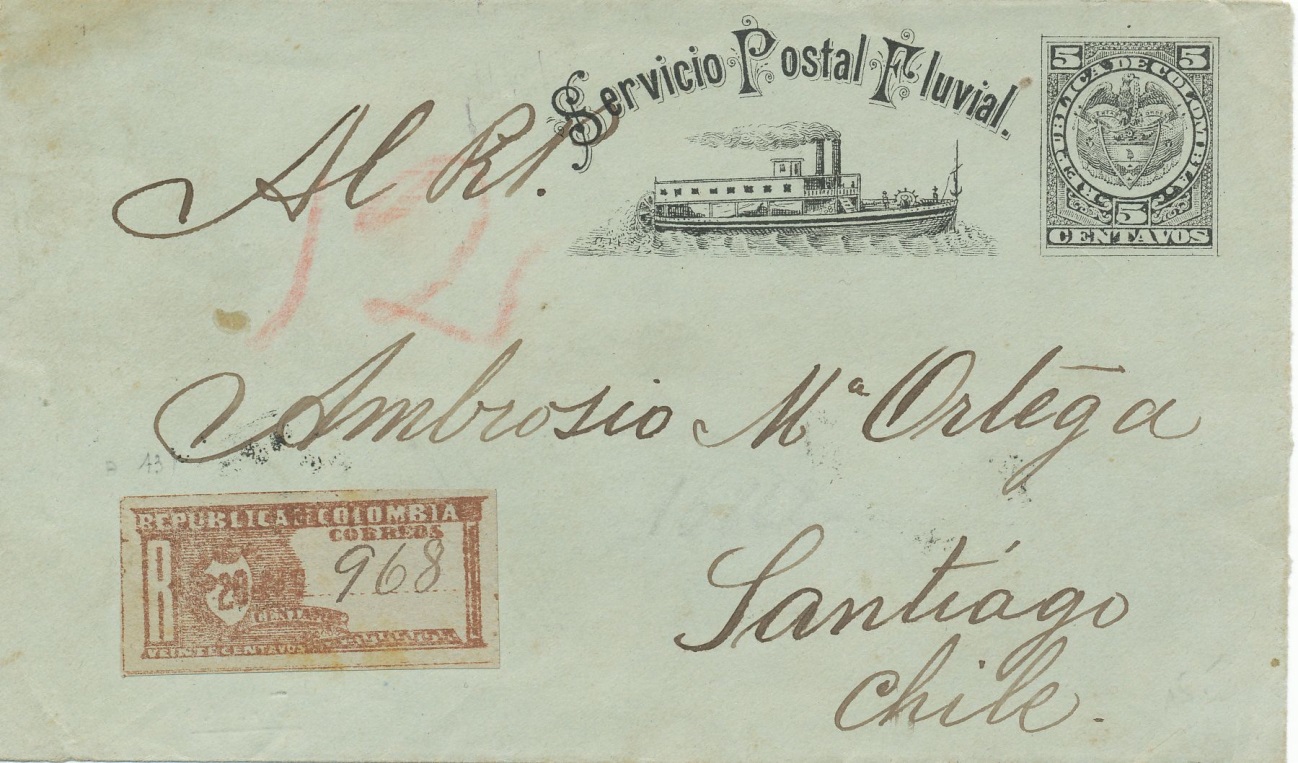 Servicio Postal Fluvial.
5 5
REPUBLICA DE COLOMBIA
5
CENTAVOS
Al R.P.
12
Ambrosio Mª Ortega
REPUBLICA DE COLOMBIA
CORREOS
R
968
20
VEINTE CENTAVOS
Santiago
Chile.